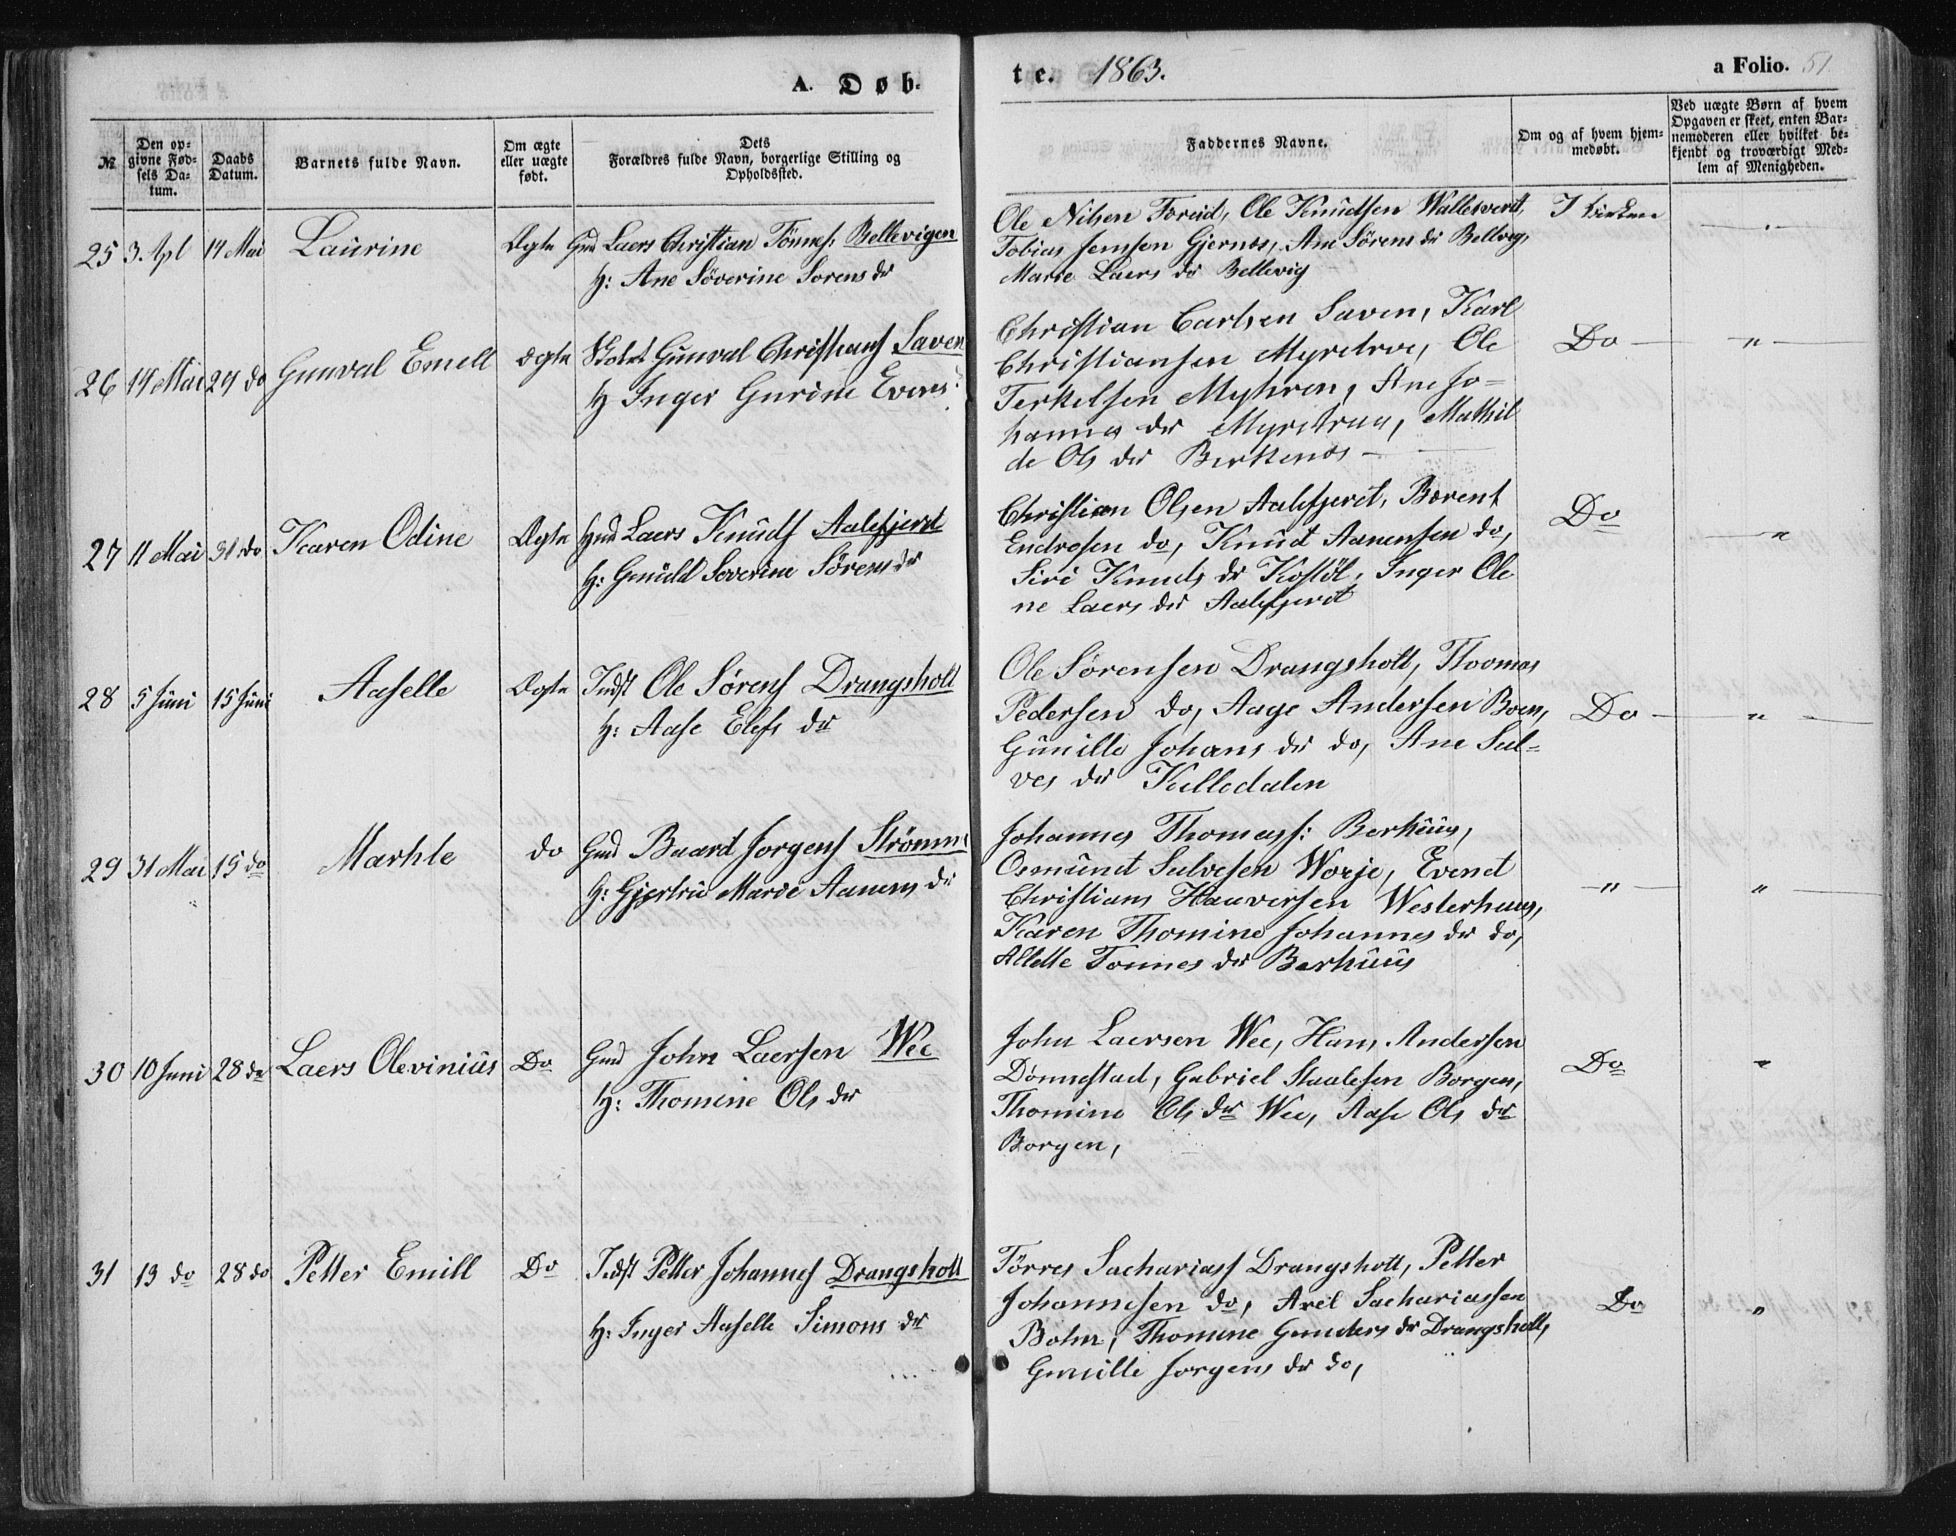 A. Døb-
te. 1863.
a Folio. 51
№
Den op-
givne Fød-
sels Da-
tum.
Daabs
Datum.
Barnets fulde Navn.
Om ægte
eller uægte
født.
Dets
Forældres fulde Navn, borgerlige Stilling og
Opholdssted.
Faddernes Navne.
Om og af hvem hjem-
medøbt.
Ved uægte Børn af hvem
Opgaven er skeet, enten Bar-
nemoderen eller hvilket be-
kjendt og troværdigt Med-
lem af Menigheden.
25 3. Apl 14 Mai Laurine Ægte Gmd Laers Christian Tönnes: Bellevigen
H: Ane Söverine Sorens dr
Ole Nilsen Foreid, Ole Knudsen Wallesverd,
Tobias Jensen Gjernæs, Ane Sörens dr Bellvig,
Marie Laers dr Bellevig
I kirken
26 14 Mai 24 do Gunval Emell ægte Gunval Christians Saven
H Inger Gurine Evens
Christian Carlsen Saven, Karl
Christiansen Myretroe, Ole
Terkelsen Myhren, Ane Jo=
hannes dr Myretrue, Mathil
de Ols dr Birkenæs -
Do - " -
27 11 Mai 31 do Karen Odine Ægte Gmd Laers Knuds Aalefjerd
H: Gunild Severine Sörens dr
Christian Olsen Aalefjerd, Berent
Endresen do, Knud Aanensen do,
Siri Knuds dr Kostöl, Inger Ole
ne Laers dr Aalefjerd
Do "
28 5 Juni 15 Juni Aaselle Ægte Indst Ole Sörens Drangsholt
H: Aase Elefs dr
Ole Sörensen Drangsholt, Thomas
Pedersen do, Aage Andersen Boen,
Gunille Johans dr do, Ane Sul=
ves dr Kulledalen
Do - " -
29 31 Mai 15 do Marhle do Gmd Baard Jorgens Strömme
H: Gjertrie Marie Aanens dr
Johannes Thomass: Berhuus,
Osmund Sulvesen Worje, Evend
Christians Haaversen Westerhuus,
Karen Thomine Johannes dr do,
Allette Tonnes dr Berhuus
- " - " -
30 10 Juni 28 do Laers Olevinius Do Gmd John Laersen Wee
H: Thomine Ols dr
John Laersen Wee, Hans Andersen
Dönnestad, Gabriel Staalesen Borgen,
Thomine Ols dr Wee, Aase Ols dr
Borgen,
Do "
31 13 do 28 do Petter Emill Do Indst Petter Johannes Drangsholt
H: Inger Aaselle Simons dr
Törres Sachariass Drangsholt, Petter
Johannesen do, Axel Sachariassen
Bohn, Thomine Gunders dr Drangsholt,
Gunille Jorgens dr do,
Do "